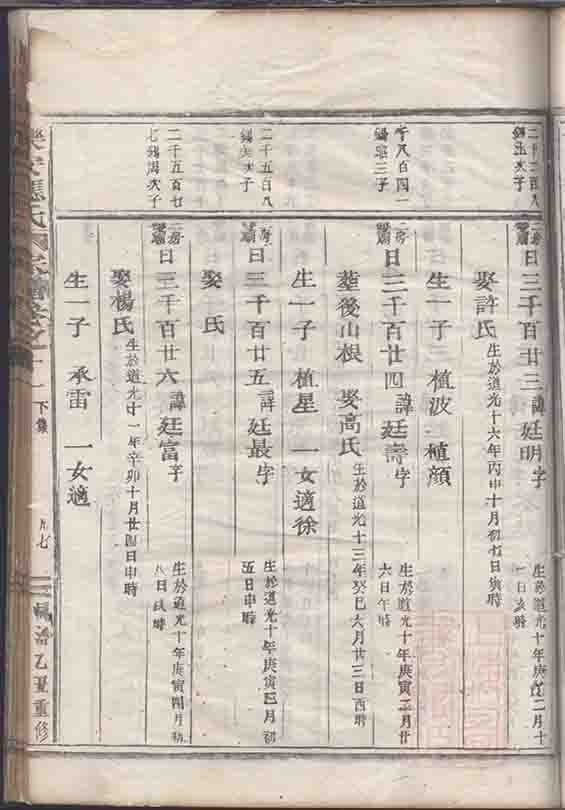 二千二百八
錫五次子
二房
曰三千百廿三諱廷明字
生於道光十年庚寅二月十
一日亥時
娶許氏生於道光十六年丙申十月初七日寅時
生一子三植波 植顔
千八百四一
三子
二房
曰三千百廿四諱廷壽字
生於道光十年庚寅二月廿
六日午時
葬後山根 娶高氏生於道光十三年癸巳六月廿三日酉時
生一子植星 一女適徐
二千五百八
次子
二房
曰三千百廿五諱廷最字
生於道光十年庚寅三月初
五日申時
娶 氏
二千五百七
七錫周次子
二房
曰三千百廿六諱廷富字
生於道光十年庚寅四月初
八日戌時
娶楊氏生於道光十一年辛卯十月廿四日申時
生一子 承雷 一女適
應氏宗譜卷之十一 下集 九七 乙亥重修